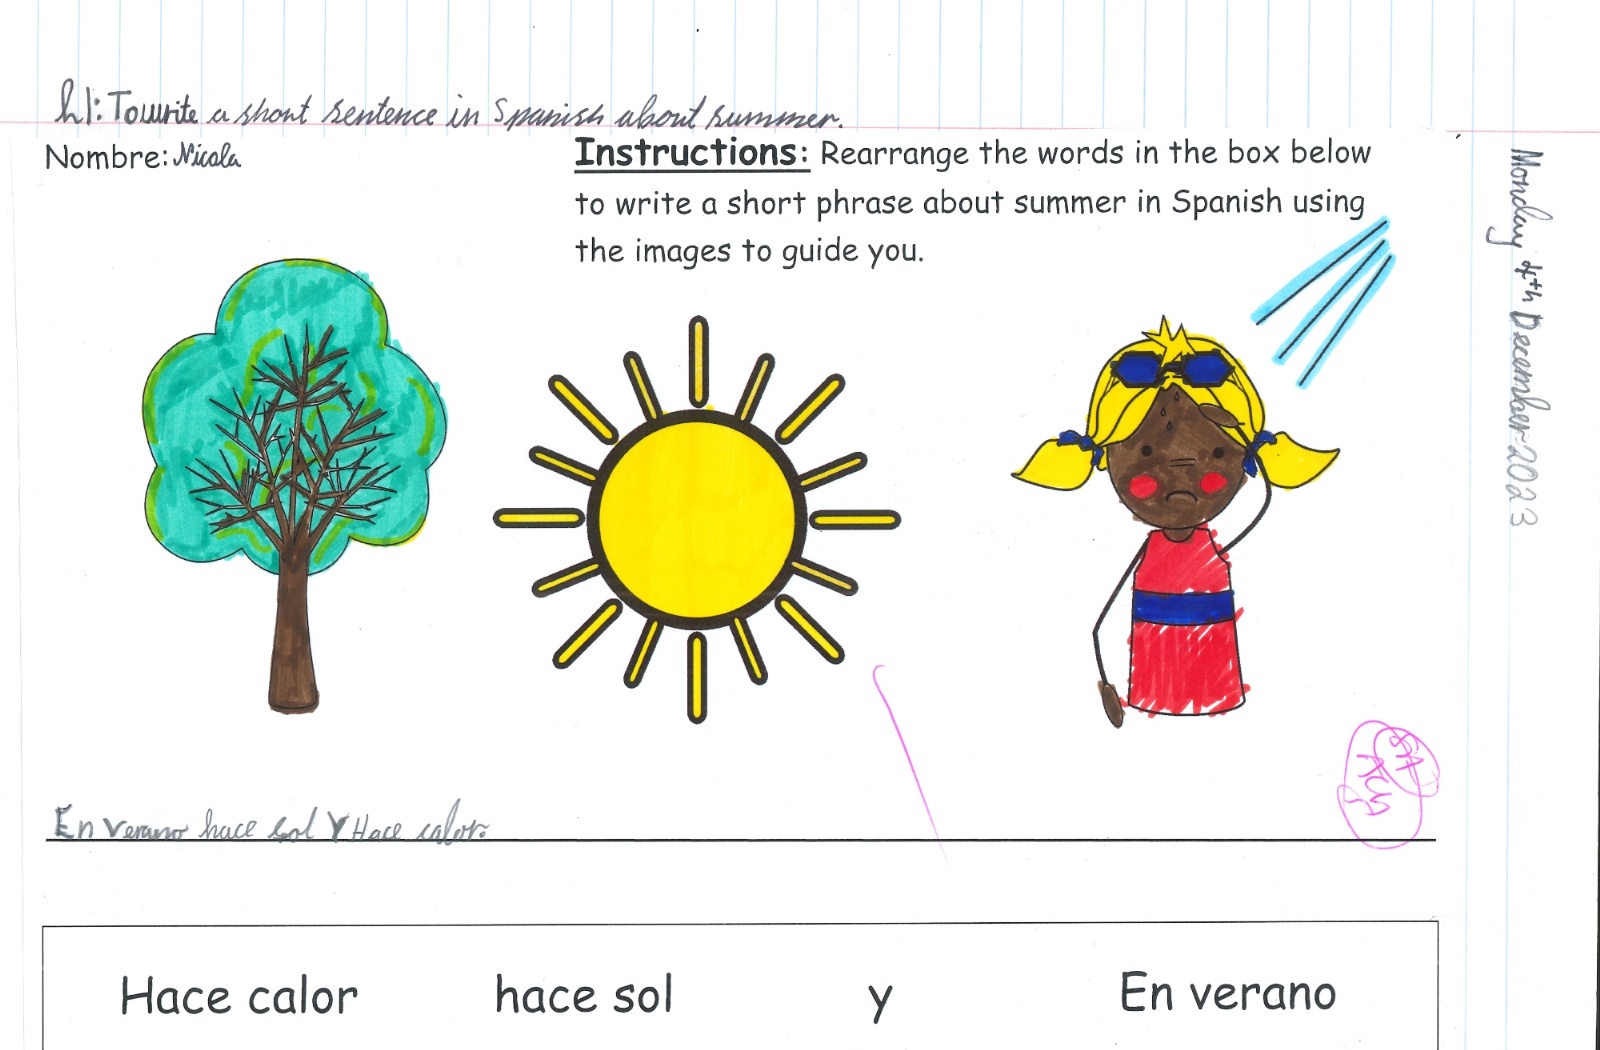 LI: To write a short sentence in Spanish about summer.
Nombre: Nicola
Instructions: Rearrange the words in the box below
to write a short phrase about summer in Spanish using
the images to guide you.
Monday 4th December 2023
En verano hace sol y Hace calor.
Hace calor hace sol y En verano